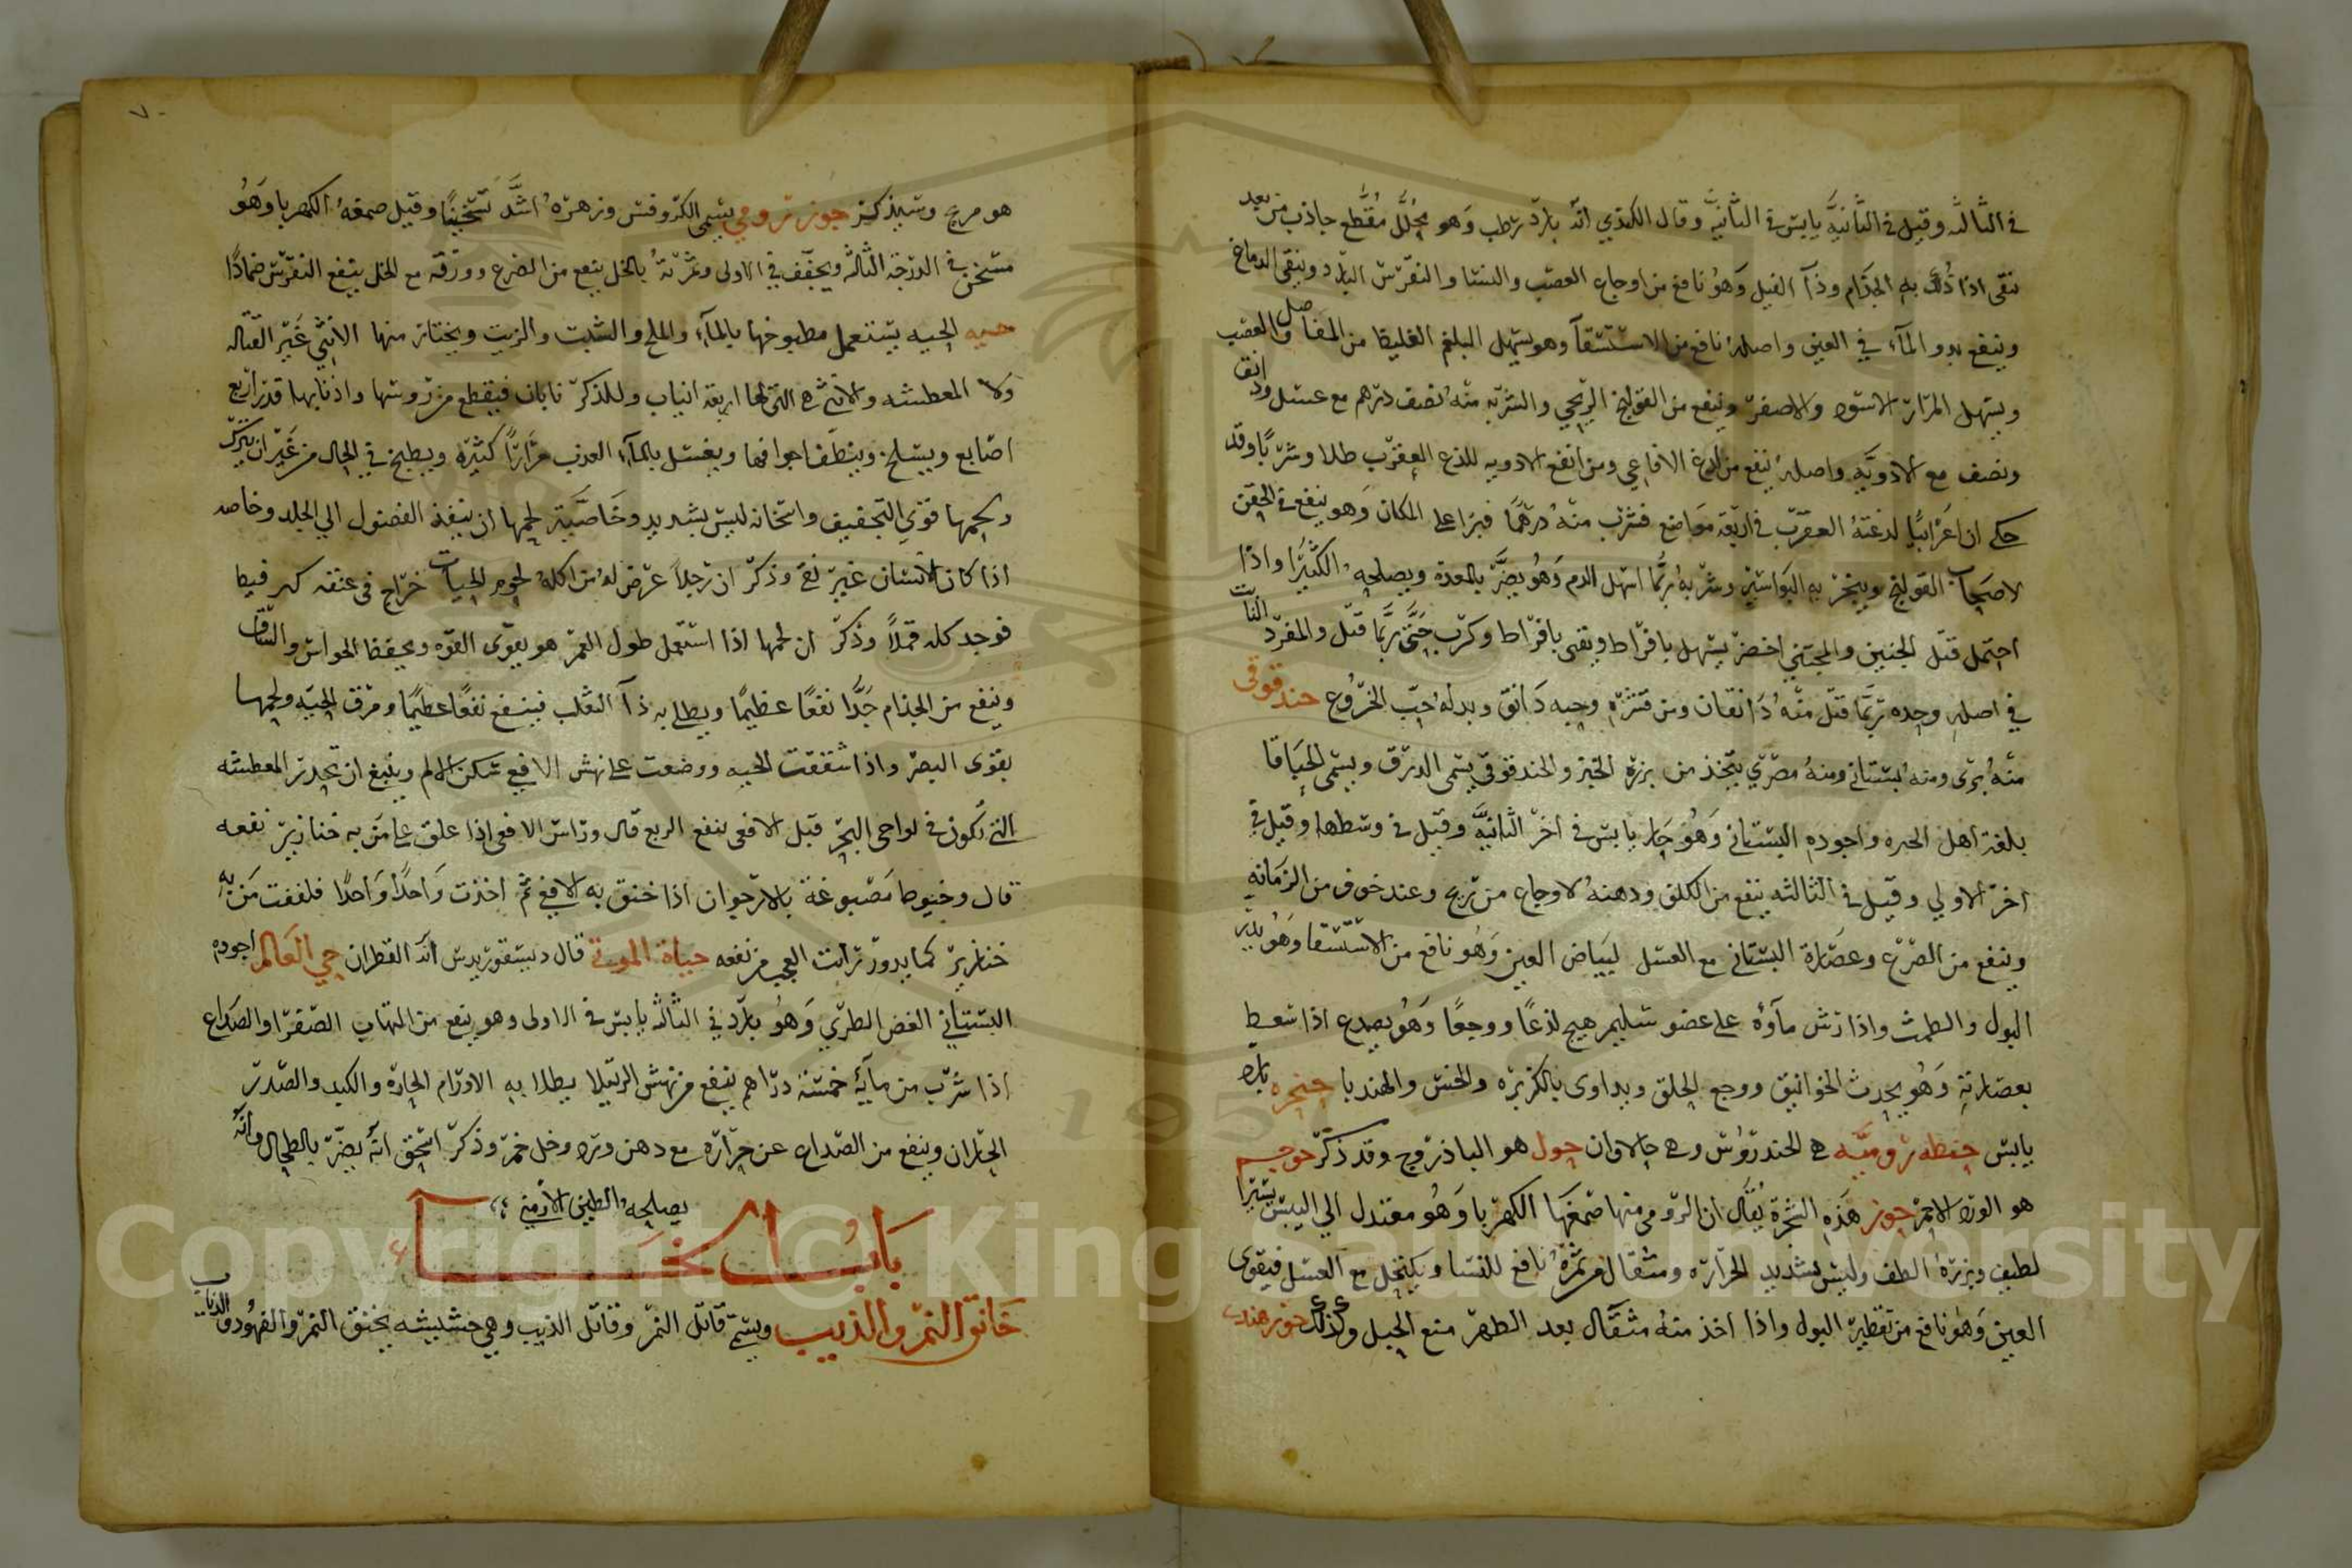 في الثالثه وقيل في الثانيه يابس في الثانيه وقال الكندي انه بارد رطب وهو محلل مقطع جاذب من بعد
نقى اذا دلك به الجذام ودآ الفيل وهو نافع من اوجاع العصب والنسا والنقرس البارد وينقى الدماغ
وينفع بدو المآء في العين واصله نافع من الاستسقآ وهو يسهل البلغم الغليظ من المفاصل والعصب
ويسهل المرار الاسود والاصفر وينفع من القولنج الريحي والشربه منه نصف درهم مع عسل ودانق
ونصف مع الادويه واصله ينفع من لدغ الافاعي ومن انفع الادويه للدغ العقرب طلا وشربا وقد
حكى ان اعرابيا لدغته العقرب في اربعة مواضع فشرب منه درهما فبرا على المكان وهو ينفع في الحقن
لاصحاب القولنج ويبخر به البواسير وشربه ربما اسهل الدم وهو يضر بالمعدة ويصلحه الكثيرا واذا
احتمل قتل الجنين والمجتنى اخضر يسهل بافراط ويقى بافراط وكرب حتى ربما قتل والمفرد النابت
في اصله وحده ربما قتل منه دانقان ومن قشره وحبه دانق وبدله حب الخروع حندقوقى
منه برى ومنه بستاني ومنه مصري يتخذ من بزره الخبز والحندقوقى يسمى الدرق ويسمى الحباقا
بلغة اهل الحيره واجوده البستاني وهو حار يابس في اخر الثانيه وقيل في وسطها وقيل في
اخر الاولي وقيل في الثالثه ينفع من الكلف ودهنه لاوجاع من ريح وعند خوف من الزمانه
وينفع من الصرع وعصارة البستاني مع العسل لبياض العين وهو نافع من الاستسقا وهو يدر
البول والطمث واذا رش مآؤه على عضو سليم هيج لذعا ووجعا وهو يصدع اذا سعط
بعصارته وهو يحدث الخوانيق ووجع الحلق ويداوى بالكزبره والخس والهندبا حنجره بارد
يابس حنطه روميه هي الخندروس وهي حالاوان حول هو الباذروج وقد ذكر حوجم
هو الورد الاحمر حور هذه الشجرة يقال ان الرومى منها صمغها الكهربا وهو معتدل الي اليبس يسيرا
لطيف وبزره الطف وليس بشديد الحراره ومثقال من ثمرة نافع للنسا ويكتحل مع العسل فيقوى
العين وهو نافع من تقطير البول واذا اخذ منه مثقال بعد الطهر منع الحبل وكذلك حور هندى
هو مرج وسيذكر حور رومي يسمى الكروفس وزهره اشد تسخينا وقيل صمغه الكهربا وهو
مسخن في الدرجة الثالثه ويجفف في الاولى وثمرته بالخل ينفع من الصرع وورقه مع الخل ينفع النقرس ضمادا
حيه الحيه يستعمل مطبوخها بالمآء والملح والشبت والزيت ويختار منها الانثى غير القتاله
ولا المعطشه والانثى هي التي لها اربعة انياب وللذكر نابان فيقطع من رؤسها واذنابها قدر اربع
اصابع ويسلخ وينظف اجوافها ويغسل بالمآء العذب مرارا كثيرة ويطبخ في الحال من غير ان يترك
ولحمها قوى التجفيف واسخانه ليس بشديد وخاصية لحمها ان ينفذ الفضول الي الجلد وخاصه
اذا كان الانسان غير نقى وذكر ان رجلا عرض له من اكله لحوم الحيات خراج في عنقه كبر فبط
فوجد كله قملا وذكر ان لحمها اذا استعمل طول العمر هو يقوى القوه ويحفظ الحواس والشباب
وينفع من الجذام جدا نفعا عظيما ويطلى به دآ الثعلب فينفع نفعا عظيما ومرق الحيه ولحمها
يقوى البصر واذا شققت الحيه ووضعت على نهش الافعى سكن الالم وينبغى ان يحذر المعطشه
التي تكون في نواحى البحر قيل الافعى ينفع الربع قال وراس الافعى اذا علق على من به خنازير نفعه
قال وخيوط مصبوغة بالارجوان اذا خنق به الافعى ثم اخذت واحدا واحدا فلففت من به
خنازير كما يدور رايت العجب من نفعه حياة الموتى قال ديسقوريدس انه القطران حي العالم اجوده
البستاني الغض الطري وهو بارد في الثالثه يابس في الاولى وهو ينفع من التهاب الصفرا والصداع
اذا شرب من مآئه خمسة دراهم ينفع من نهش الرتيلا يطلا به الاورام الحارة والكبد والصدر
الحاران وينفع من الصداع عن حرارة مع دهن ورد وخل خمر وذكر اسحق انه يضر بالطحال وانه
يصلحه الطين الارمني
باب الخا
خانق النمر والذيب ويسمى قاتل النمر وقاتل الذيب وهي حشيشه يخنق النمر والفهود والذياب